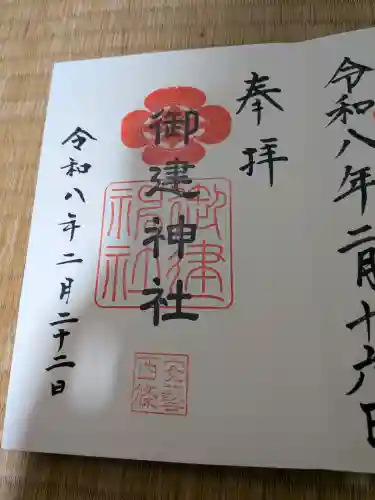 令和八年二月十六日
奉拝
御建神社
御建
神社
令和八年二月二十二日
西條